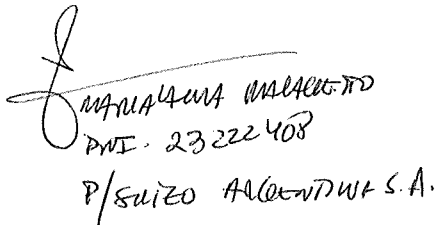 MARIA LAURA
DNI. 23222408
P/SUIZO ARGENTINA S.A.